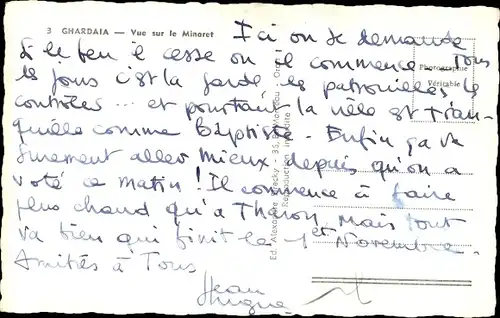 3 GHARDAIA — Vue sur le Minaret
Photographie
Véritable
Ici on se demande
si le feu il cesse ou il commence. Tous
les jours c'est la garde les patrouilles le
contrôles ... et pourtant la ville est tran-
quille comme Baptiste. Enfin ça va
surement aller mieux depuis qu'on a
voté ce matin ! Il commence à faire
plus chaud qu'à Tharon, Mais tout
va bien qui finit le 1er Novembre.
Amitiés à Tous
Jean
Hugues
Ed. Alexandre 35, Oran
Reproduction interdite